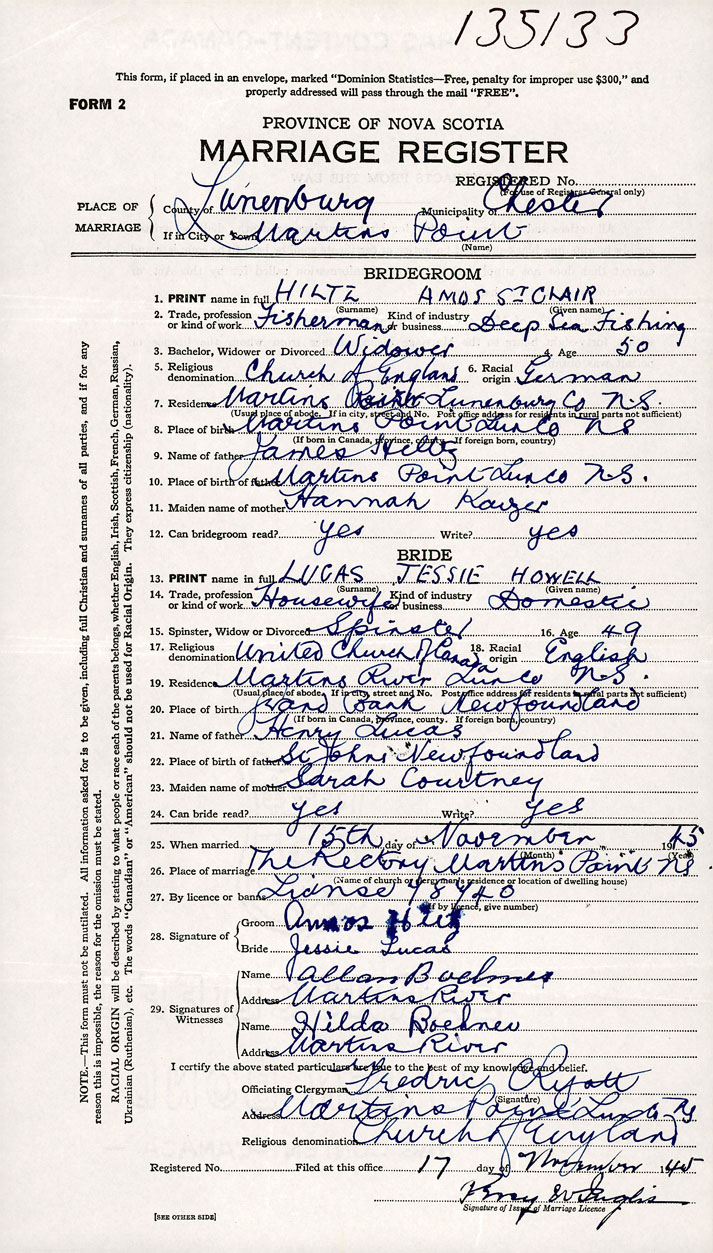 135133
This form, if placed in an envelope, marked "Dominion Statistics—Free, penalty for improper use $300," and
properly addressed will pass through the mail "FREE".
FORM 2
PROVINCE OF NOVA SCOTIA
MARRIAGE REGISTER
REGISTERED No.
(For use of Registrar General only)
PLACE OF MARRIAGE
County of Lunenburg Municipality of Chester
If in City or Town Martins Point
(Name)
BRIDEGROOM
1. PRINT name in full HILTZ AMOS ST CLAIR
(Surname) (Given name)
2. Trade, profession or kind of work Fisherman Kind of industry or business Deep Sea Fishing
3. Bachelor, Widower or Divorced Widower 4. Age 50
5. Religious denomination Church of England 6. Racial origin German
7. Residence Martins Point Lunenburg Co N.S.
(Usual place of abode. If in city, street and No. Post office address for residents in rural parts not sufficient)
8. Place of birth Martins Point Lun Co NS
(If born in Canada, province, county. If foreign born, country)
9. Name of father James Hiltz
10. Place of birth of father Martins Point Lun Co N.S.
11. Maiden name of mother Hannah Kaizer
12. Can bridegroom read? yes Write? yes
BRIDE
13. PRINT name in full LUCAS JESSIE HOWELL
(Surname) (Given name)
14. Trade, profession or kind of work Housewife Kind of industry or business Domestic
15. Spinster, Widow or Divorced Spinster 16. Age 49
17. Religious denomination United Church of Canada 18. Racial origin English
19. Residence Martins River Lun Co N.S.
(Usual place of abode. If in city, street and No. Post office address for residents in rural parts not sufficient)
20. Place of birth Grand Bank Newfoundland
(If born in Canada, province, county. If foreign born, country)
21. Name of father Henry Lucas
22. Place of birth of father St Johns Newfoundland
23. Maiden name of mother Sarah Courtney
24. Can bride read? yes Write? yes
25. When married 15th day of November 1945
(Month) (Year)
26. Place of marriage The Rectory Martins Point NS
(Name of church or clergyman's residence or location of dwelling house)
27. By licence or banns License 98740
(If by licence, give number)
28. Signature of
Groom Amos Hiltz
Bride Jessie Lucas
29. Signatures of Witnesses
Name Allan Boehner
Address Martins River
Name Hilda Boehner
Address Martins River
I certify the above stated particulars are true to the best of my knowledge and belief.
Officiating Clergyman Fredric Ryott
(Signature)
Address Martins Point Lun Co NS
Religious denomination Church of England
Registered No. Filed at this office 17 day of November 1945
Signature of Issuer of Marriage Licence
[SEE OTHER SIDE]
NOTE.—This form must not be mutilated. All information asked for is to be given, including full Christian and surnames of all parties, and if for any
reason this is impossible, the reason for the omission must be stated.
RACIAL ORIGIN will be described by stating to what people or race each of the parents belongs, whether English, Irish, Scottish, French, German, Russian,
Ukrainian (Ruthenian), etc. The words "Canadian" or "American" should not be used for Racial Origin. They express citizenship (nationality).